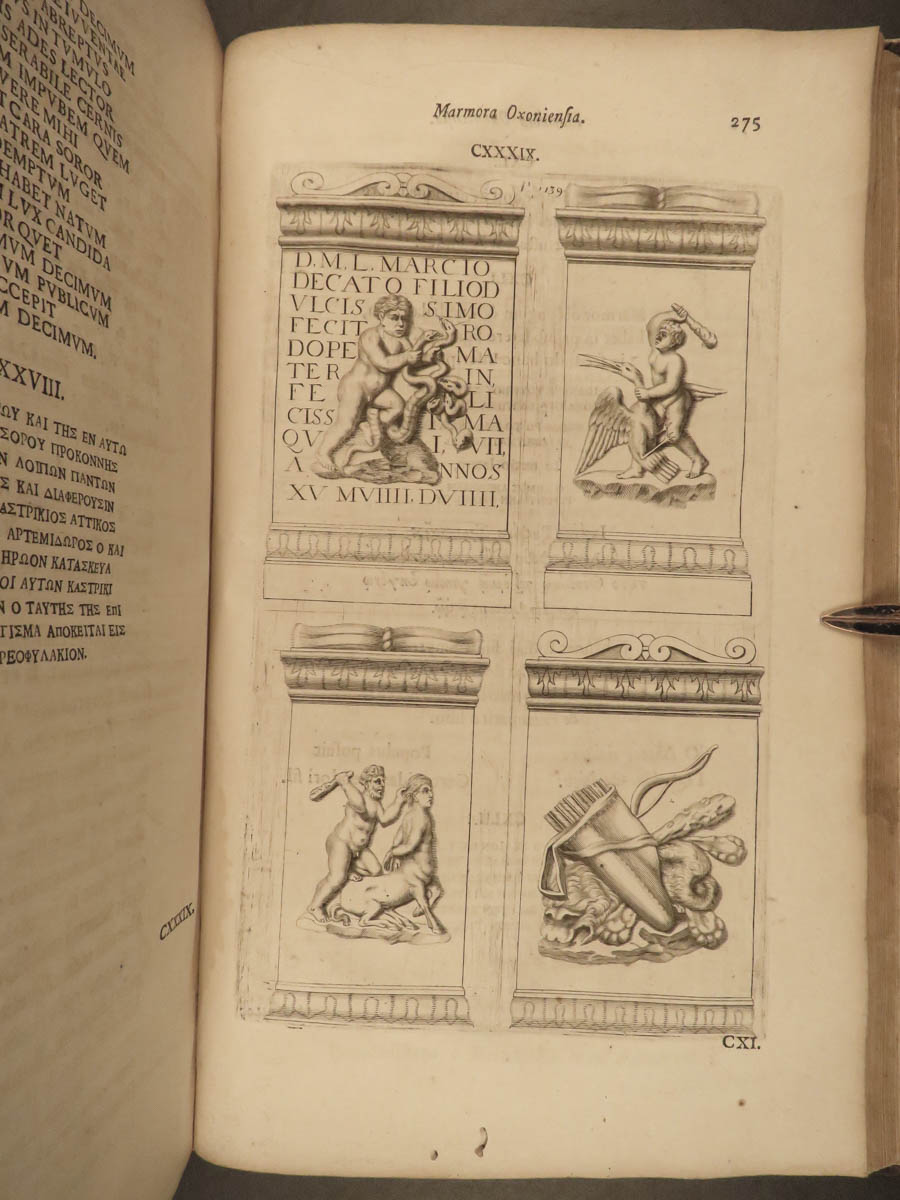 DECIMVM
ABREPTVS
IN TVMVLO
ADES LECTOR
SERABILE CERNIS
M IMPVBEM QVEM
VERE MIHI
T CARA SOROR
ATREM LVGET
DEMPTVM
HABET NATVM
I LVX CANDIDA
OR QVET
MVM DECIMVM
VM PVBLICVM
CCEPIT
M DECIMVM.
XXVIII.
ΩΥ ΚΑΙ ΤΗΣ ΕΝ ΑΥΤΩ
ΣΟΡΟΥ ΠΡΟΚΟΝΝΗΣ
Ν ΛΟΙΠΩΝ ΠΑΝΤΩΝ
Σ ΚΑΙ ΔΙΑΦΕΡΟΥΣΙΝ
ΑΣΤΡΙΚΙΟΣ ΑΤΤΙΚΟΣ
ΑΡΤΕΜΙΔΩΡΟΣ Ο ΚΑΙ
ΗΡΩΟΝ ΚΑΤΑΣΚΕΥΑ
ΟΙ ΑΥΤΩΝ ΚΑΣΤΡΙΚΙ
Ν Ο ΤΑΥΤΗΣ ΤΗΣ ΕΠΙ
ΓΙΣΜΑ ΑΠΟΚΕΙΤΑΙ ΕΙΣ
ΡΕΟΦΥΛΑΚΙΟΝ.
CXXXIX.
Marmora Oxoniensia.
275
CXXXIX.
139
D.M.L. MARCIO
DECATO FILIO D
VLCIS SIMO
FECIT RO
DOPE MA
TER IN,
FE LI
CISS MA
QV I, VII,
A NNOS
XV MVIIII, DVIIII,
CXI.